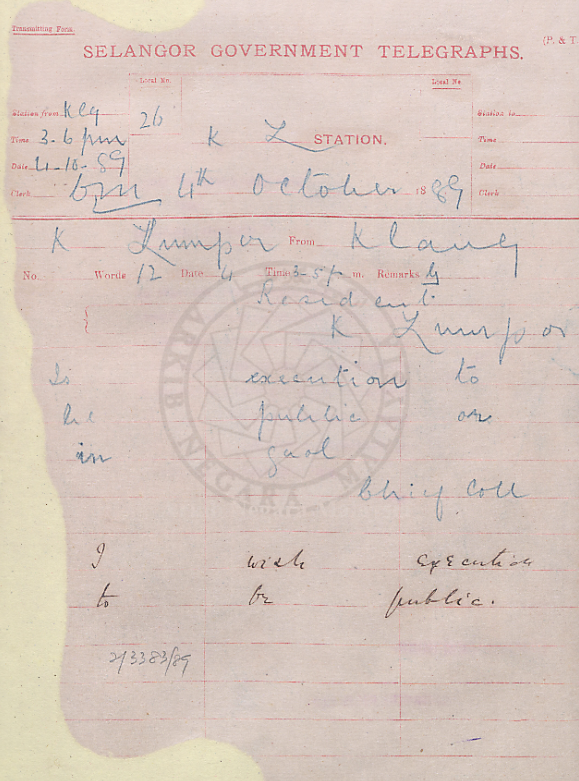 Transmitting Form.
(P. & T
SELANGOR GOVERNMENT TELEGRAPHS.
Local No.
Local No.
Station from Klg
26
Station to
Time 3-6 pm
K L STATION.
Time
Date 4-10-89
Date
Clerk
4th October 1889
Clerk
K Lumpor From Klang
No. Words 12 Date 4 Time 3-5 p m. Remarks
Resident
K Lumpor
Is execution to
be public or
in gaol
Chief Coll
I wish execution
to be public.
2/3383/89
ARKIB NEGARA MALAYSIA